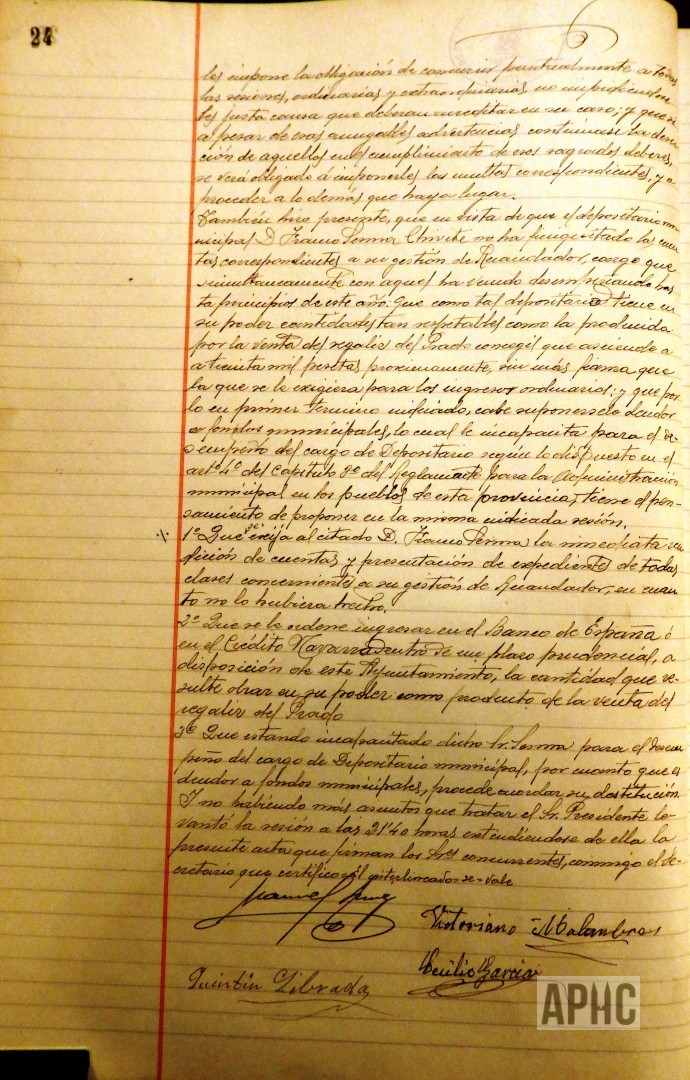 24
les impone la obligación de concurrir puntualmente a todas
las sesiones, ordinarias y extraordinarias, no impidiendo
les justa causa que deberan acreditar en su caso; y que si
a pesar de esas amigables advertencias continuase la deser
ción de aquellos en el cumplimiento de esos sagrados deberes,
se verá obligado á imponerles las multas correspondientes, y a
proceder a lo demás que haya lugar.
También hizo presente, que en vista de que el depositario mu
nicipal D. Franco Sesma Chivite no ha finiquitado las cuen
tas correspondientes a su gestión de Recaudador, cargo que
simultaneamente con aquel ha venido desempeñando has
ta principios de este año: Que como tal depositario tiene en
su poder cantidades tan respetables como la producida
por la venta del regaliz del Prado concegil que asciende a
a treinta mil pesetas proximamente, sin más fianza que
la que se le exigiera para los ingresos ordinarios: y que por
lo en primer termino indicado, cabe suponersele deudor
a fondos municipales, lo cual le incapacita para el de
sempeño del cargo de Depositario según lo dispuesto en el
artº 4º del Capitulo 8º del Reglamento para la Administración
municipal en los pueblos de esta provincia, tiene el pen-
samiento de proponer en la misma indicada sesión.
1º Que se exija al citado D. Franco Sesma la inmediata ren
dición de cuentas y presentación de expedientes de todas
clases concerniente a su gestión de Recaudador, en cuan
to no lo hubiera hecho.
2º Que se le ordene ingresar en el Banco de España ó
en el Crédito Navarro dentro de un plazo prudencial, a
disposición de este Ayuntamiento, la cantidad que re-
sulte obrar en su poder como producto de la venta del
regaliz del Prado
3º Que estando incapacitado dicho Sr. Sesma para el desem
peño del cargo de Depositario municipal, por cuanto que es
deudor a fondos municipales, procede acordar su destitución.
Y no habiendo más asuntos que tratar el Sr. Presidente le-
vantó la sesión a las 21'40 horas extendiendose de ella la
presente acta que firman los Sres concurrentes, conmigo el Se-
cretario que certifico=El interlineado=se=vale
Victoriano Malumbres
Cecilio García
Quintín Librada
APHC